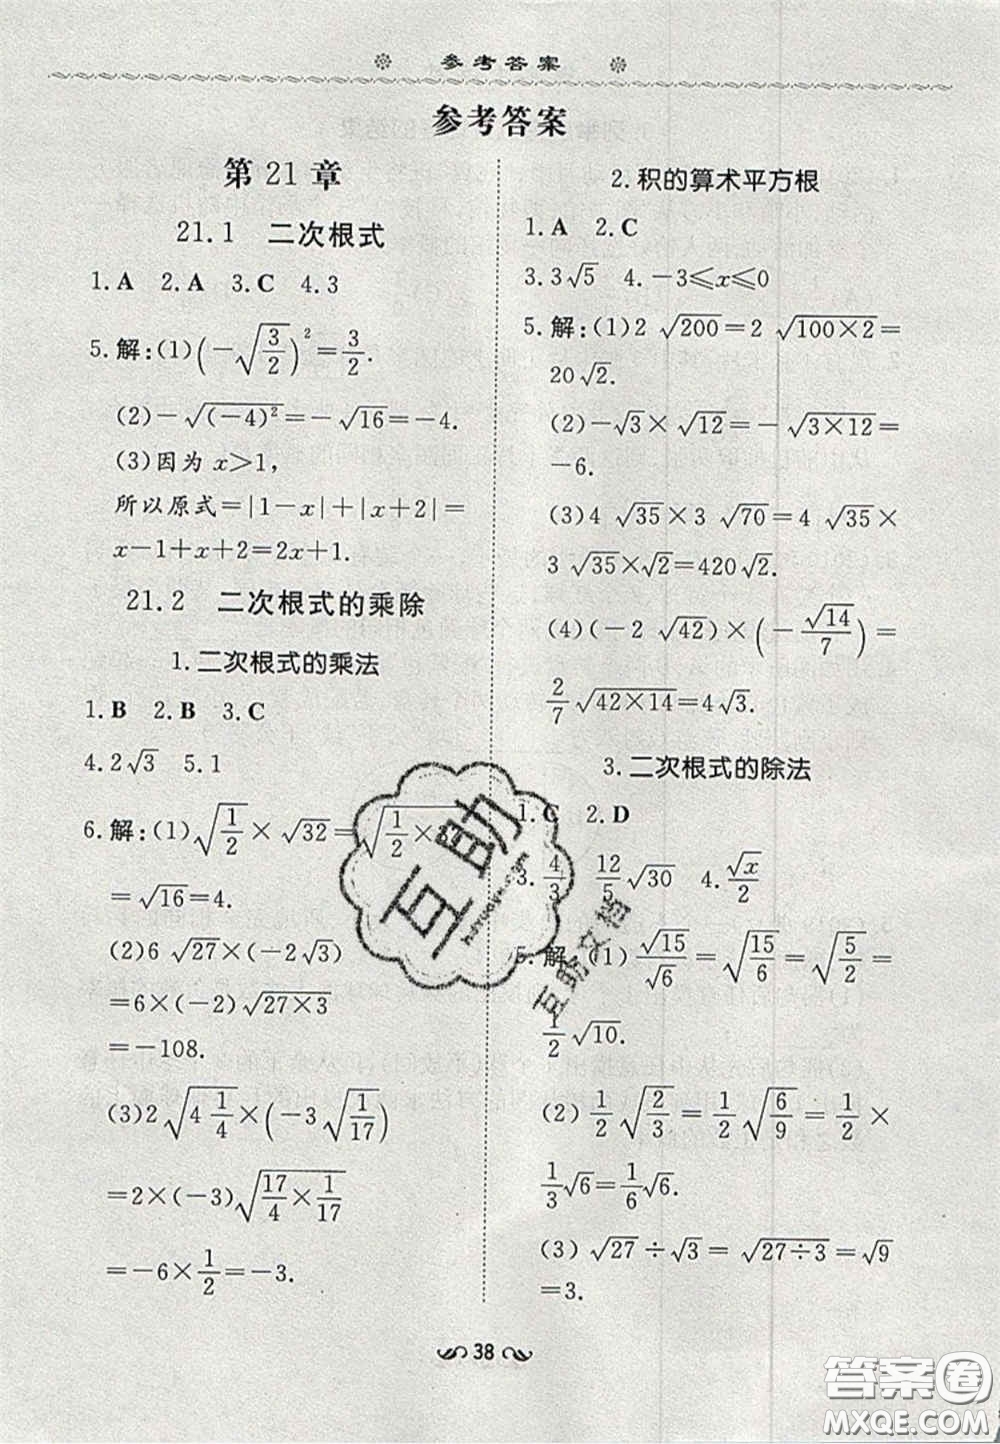 参考答案
参考答案
第 21 章
21.1 二次根式
1.A 2.A 3.C 4.3
5.解:(1)(-√(3/2))²=3/2.
(2)-√((-4)²)=-√16=-4.
(3)因为 x>1,
所以原式=|1-x|+|x+2|=
x-1+x+2=2x+1.
21.2 二次根式的乘除
1.二次根式的乘法
1.B 2.B 3.C
4.2√3 5.1
6.解:(1)√(1/2)×√32=√(1/2×32)
=√16=4.
(2)6√27×(-2√3)
=6×(-2)√(27×3)
=-108.
(3)2√(4 1/4)×(-3√(1/17))
=2×(-3)√(17/4×1/17)
=-6×1/2=-3.
2.积的算术平方根
1.A 2.C
3.3√5 4.-3≤x≤0
5.解:(1)2√200=2√(100×2)=
20√2.
(2)-√3×√12=-√(3×12)=
-6.
(3)4√35×3√70=4√35×
3√35×√2=420√2.
(4)(-2√42)×(-√14/7)=
2/7√(42×14)=4√3.
3.二次根式的除法
1.C 2.D
3.4/3 12/5√30 4.√x/2
5.解:(1)√15/√6=√(15/6)=√(5/2)=
1/2√10.
(2)1/2√(2/3)=1/2√(6/9)=1/2×
1/3√6=1/6√6.
(3)√27÷√3=√(27÷3)=√9
=3.
38
互助
互助文档
答案圈
MXQE.COM